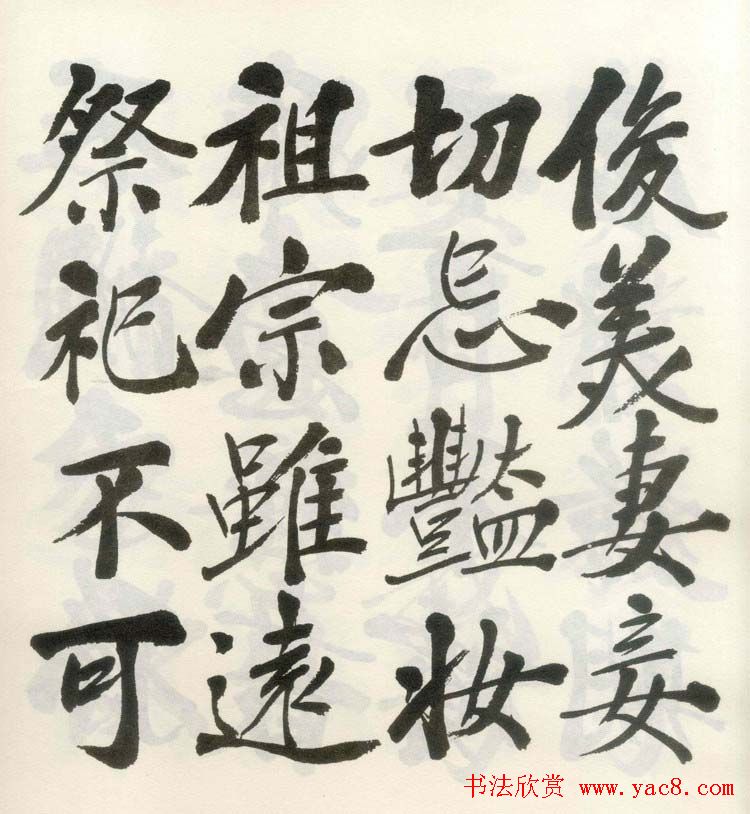 俊美妻妾
切忌豔妝
祖宗雖遠
祭祀不可
书法欣赏 www.yac8.com